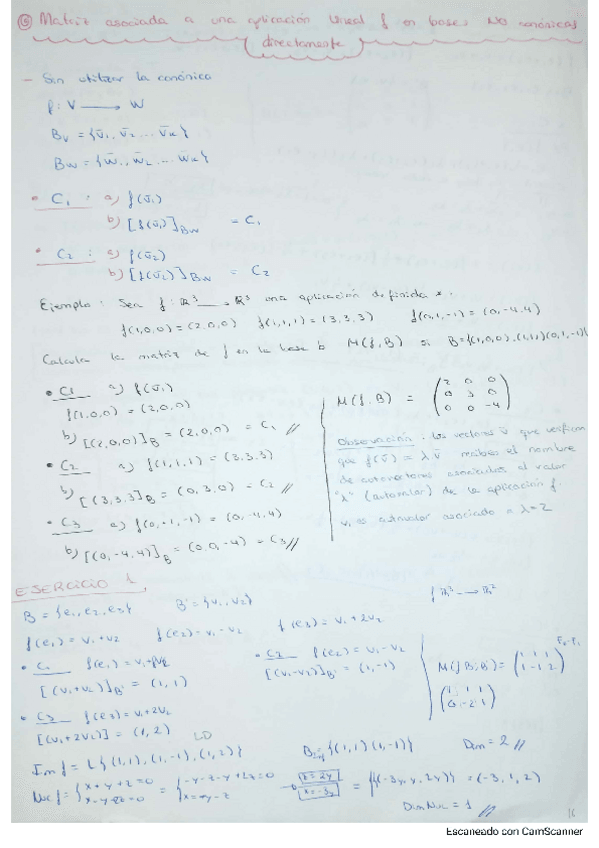 ⑥ Matriz asociada a una aplicación lineal f en bases NO canónicas
directamente
- Sin utilizar la canónica
f: V → W
Bv = {v̄1, v̄2 ... v̄k}
Bw = {w̄1, w̄2 ... w̄k}
• C1 : a) f(v̄1)
b) [f(v̄1)]Bw = C1
• C2 : a) f(v̄2)
b) [f(v̄2)]Bw = C2
Ejemplo: Sea f: ℝ³ → ℝ³ una aplicación definida x:
f(1,0,0) = (2,0,0) f(1,1,1) = (3,3,3) f(0,1,-1) = (0,-4,4)
Calcula la matriz de f en la base b M(f,B) si B={(1,0,0),(1,1,1)(0,1,-1)}
• C1 a) f(v̄1)
f(1,0,0) = (2,0,0)
b) [(2,0,0)]B = (2,0,0) = C1 //
• C2 a) f(1,1,1) = (3,3,3)
b) [(3,3,3)]B = (0,3,0) = C2 //
• C3 a) f(0,-1,-1) = (0,-4,4)
b) [(0,-4,4)]B = (0,0,-4) = C3 //
M(f,B) = (2 0 0
0 3 0
0 0 -4)
Observación: Los vectores v̄ que verifican
que f(v̄) = λv̄ reciben el nombre
de autovectores asociados al valor
"λ" (autovalor) de la aplicación f.
v1 es autovalor asociado a λ=2
EJERCICIO 1
f ℝ³ → ℝ²
B = {e1, e2, e3} B' = {v1, v2}
f(e1) = v1+v2 f(e2) = v1-v2 f(e3) = v1+2v2
• C1 f(e1) = v1+v2
[(v1+v2)]B' = (1,1)
• C2 f(e2) = v1-v2
[(v1-v2)]B' = (1,-1)
• C3 f(e3) = v1+2v2
[(v1+2v2)] = (1,2)
M(f B; B') = (1 1 1
1 -1 2)
F2-F1
(1 1 1
0 -2 1)
LD
Im f = L {(1,1), (1,-1), (1,2)} = {(1,1) (1,-1)} Dim = 2 //
Nuc f = {x+y+z=0
x-y+2z=0 = {-y-z-y+2z=0
x=-y-z → z=2y
x=-3y = {(-3y, y, 2y)} = (-3,1,2)
Dim Nuc = 1 //
16
Escaneado con CamScanner